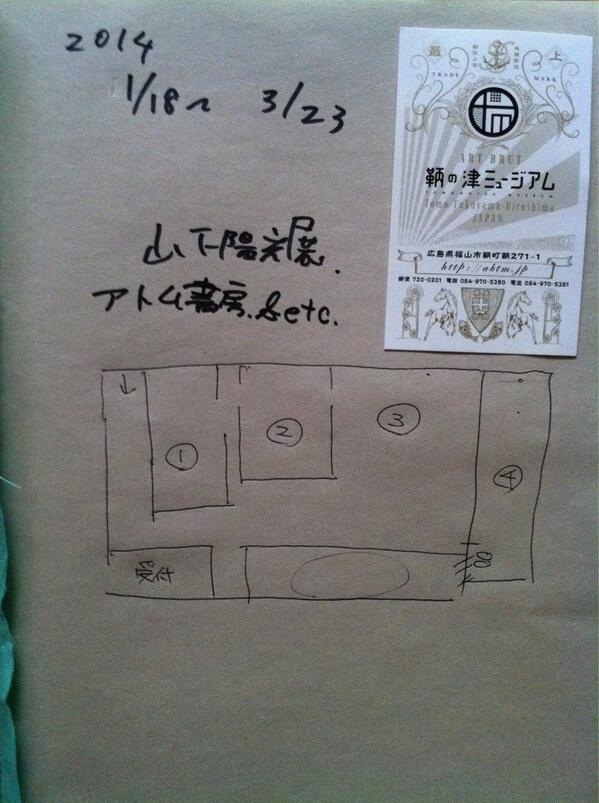 2014
1/18〜 3/23
山下陽光展.
アトム書房.&etc.
最 上
TRADE MARK
ART BRUT
鞆の津ミュージアム
TOMONOTSU MUSEUM
Tomo-Fukuyama-Hiroshima
JAPAN
広島県福山市鞆町鞆271-1
http://abtm.jp
郵便 720-0201 電話 084-970-5380 電送 084-970-5381
↓
①
②
③
④
受付